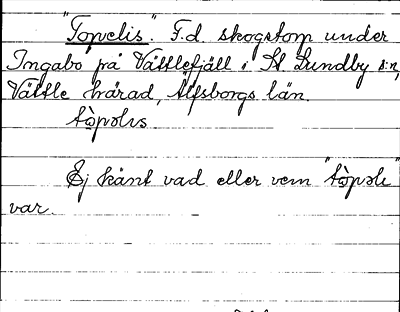 "Topelis". F.d. skogstorp under
Ingabo på Vättlefjäll i St Lundby s:n,
Vättle härad, Älfsborgs län.
tòpəlıs
Ej känt vad eller vem "tòpəlı"
var.